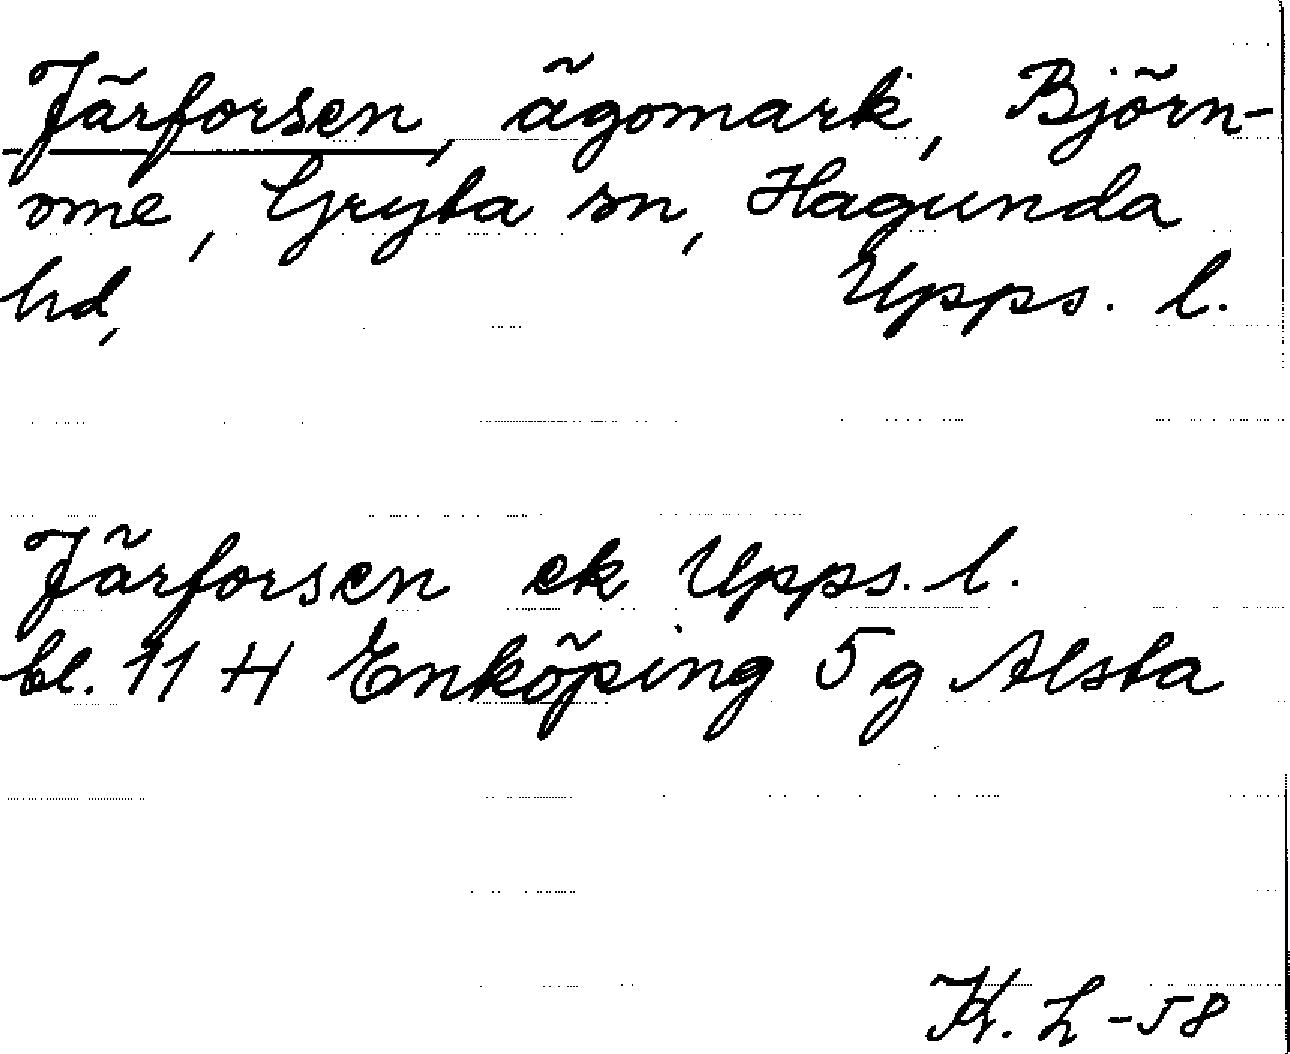 Järforsen, ägomark, Björn-
ome, Gryta sn, Hagunda
hd, Upps. l.
Järforsen ek Upps. l.
bl. 11 H Enköping 5 g Alsta
K. L -58